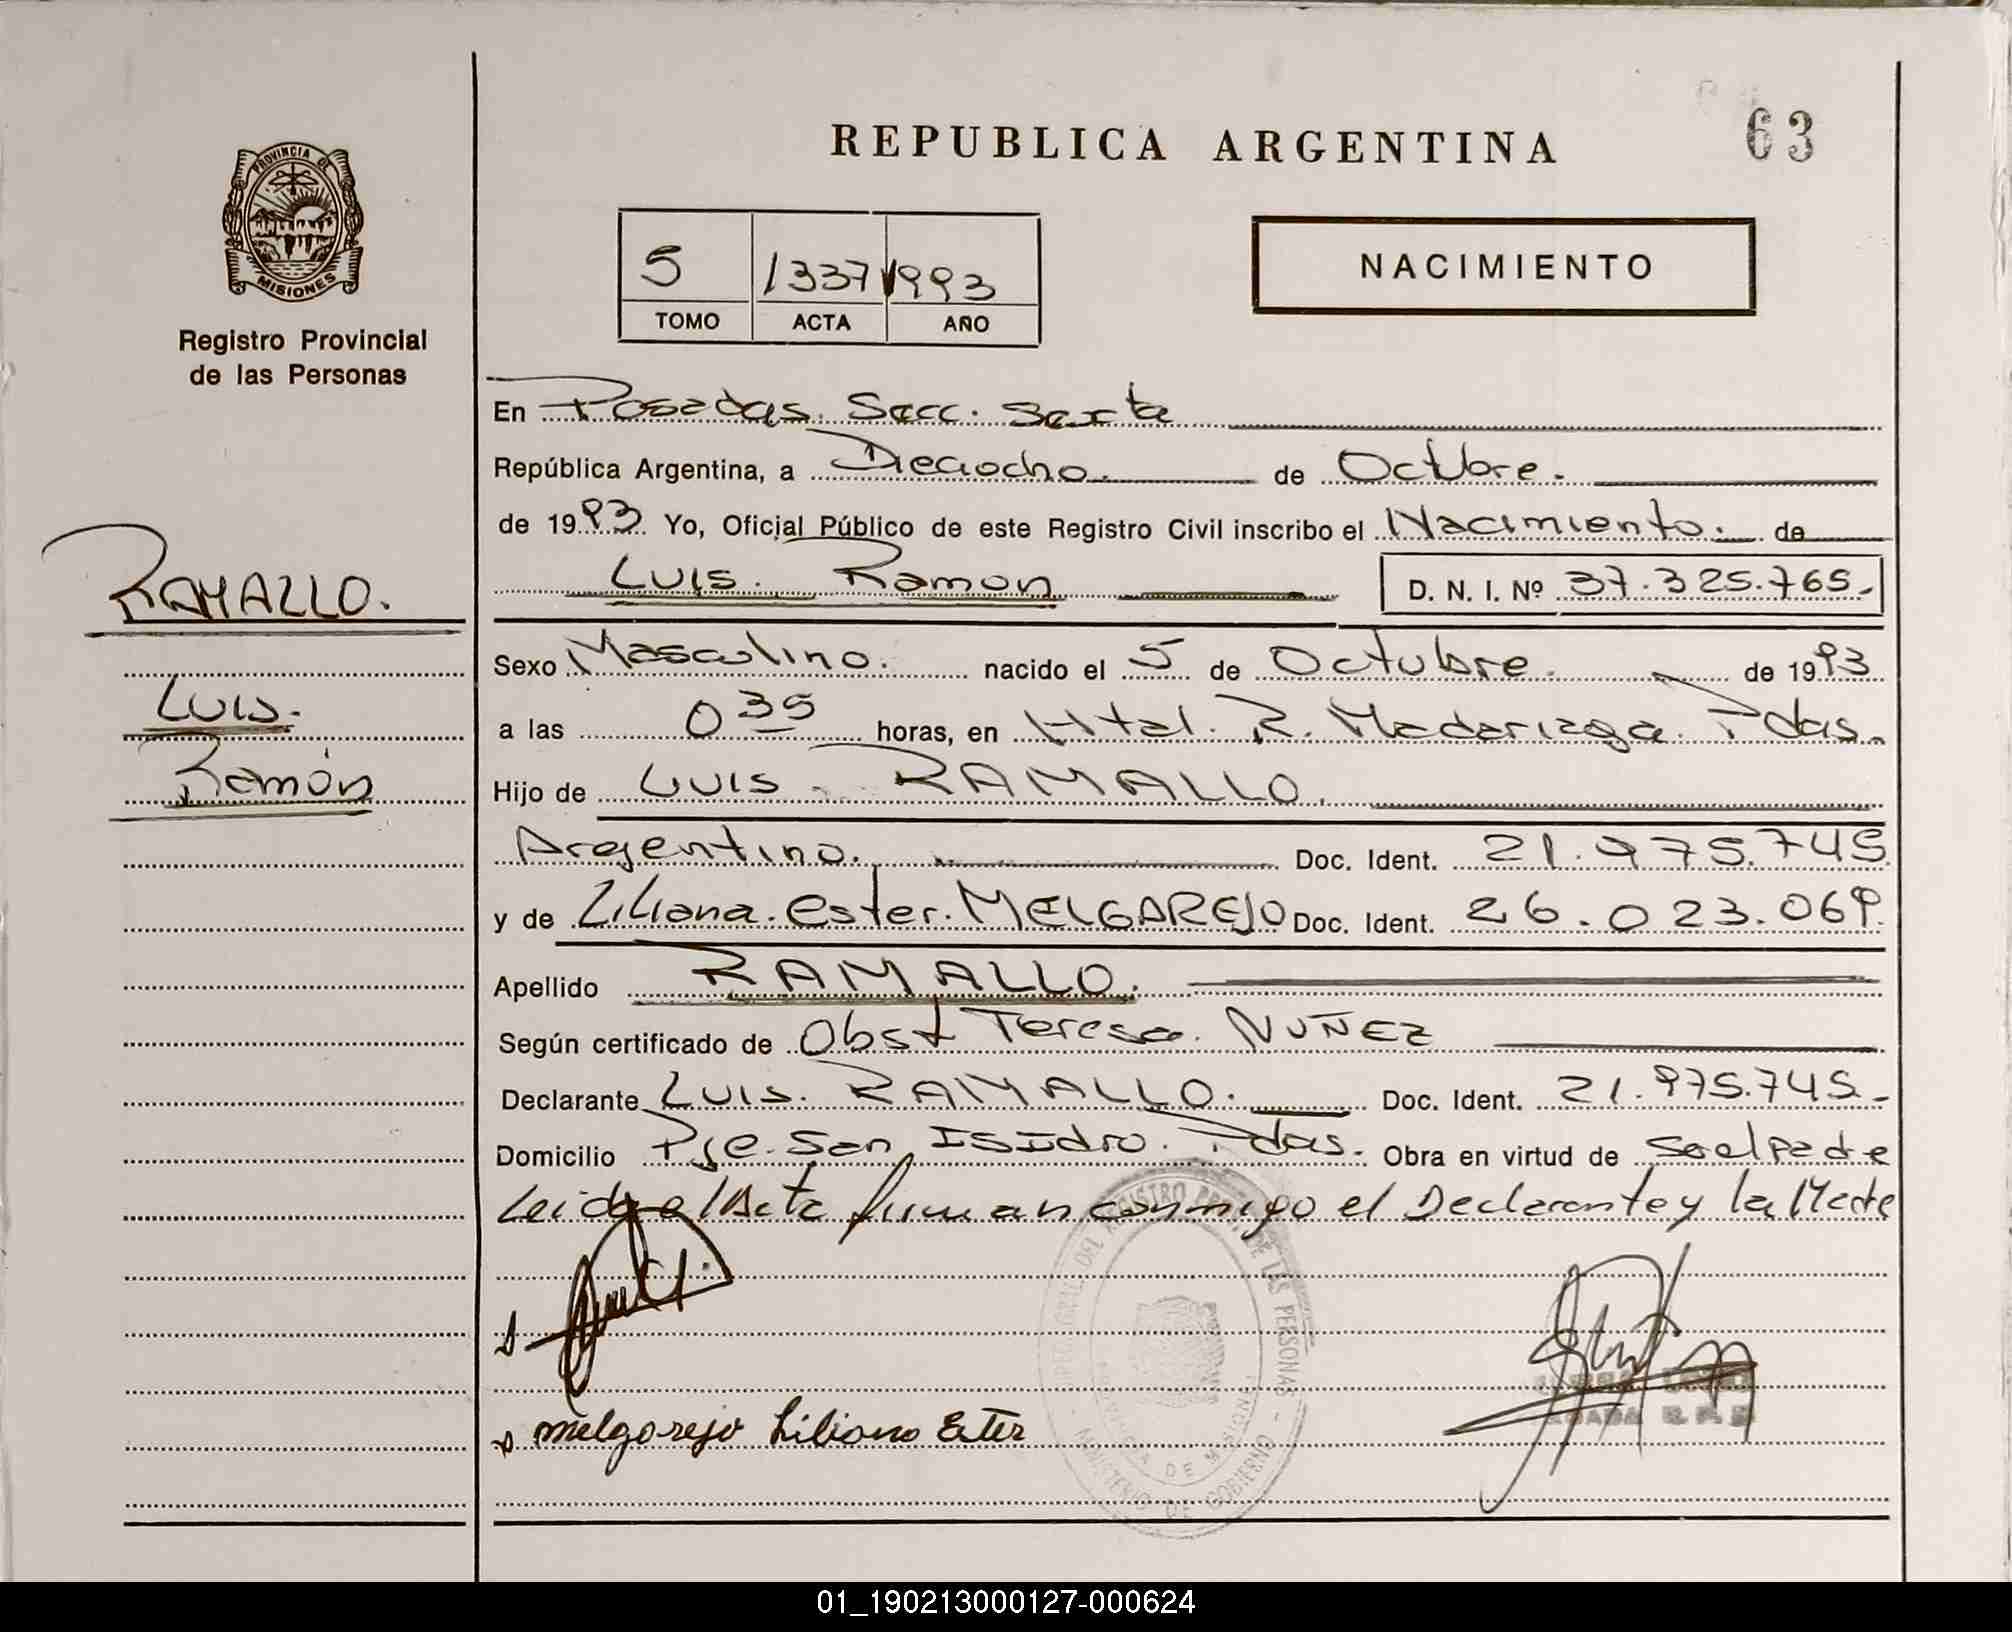 REPUBLICA ARGENTINA
63
PROVINCIA DE
MISIONES
Registro Provincial
de las Personas
5 1337 1993
TOMO ACTA AÑO
NACIMIENTO
En Posadas. Secc. Sexta
República Argentina, a Dieciocho. de Octubre.
de 1993 Yo, Oficial Público de este Registro Civil inscribo el Nacimiento. de
Luis. Ramon D. N. I. Nº 37.325.765.-
RAMALLO.
Luis.
Ramón
Sexo Masculino. nacido el 5 de Octubre. de 1993
a las 0 35 horas, en Htal. R. Madariaga. Pdas.
Hijo de LUIS RAMALLO.
Argentino. Doc. Ident. 21.975.745.
y de Liliana. Ester. MELGAREJO Doc. Ident. 26.023.069.
Apellido RAMALLO.
Según certificado de Obst Teresa. NUÑEZ
Declarante LUIS. RAMALLO. Doc. Ident. 21.975.745.-
Domicilio Pje. San Isidro. Pdas. Obra en virtud de Ser el Padre
Leida el Acta firman conmigo el Declarante y la Madre
Melgarejo Liliana Ester
DE LAS PERSONAS
PROVINCIA DE MISIONES
MINISTERIO DE GOBIERNO
01_190213000127-000624